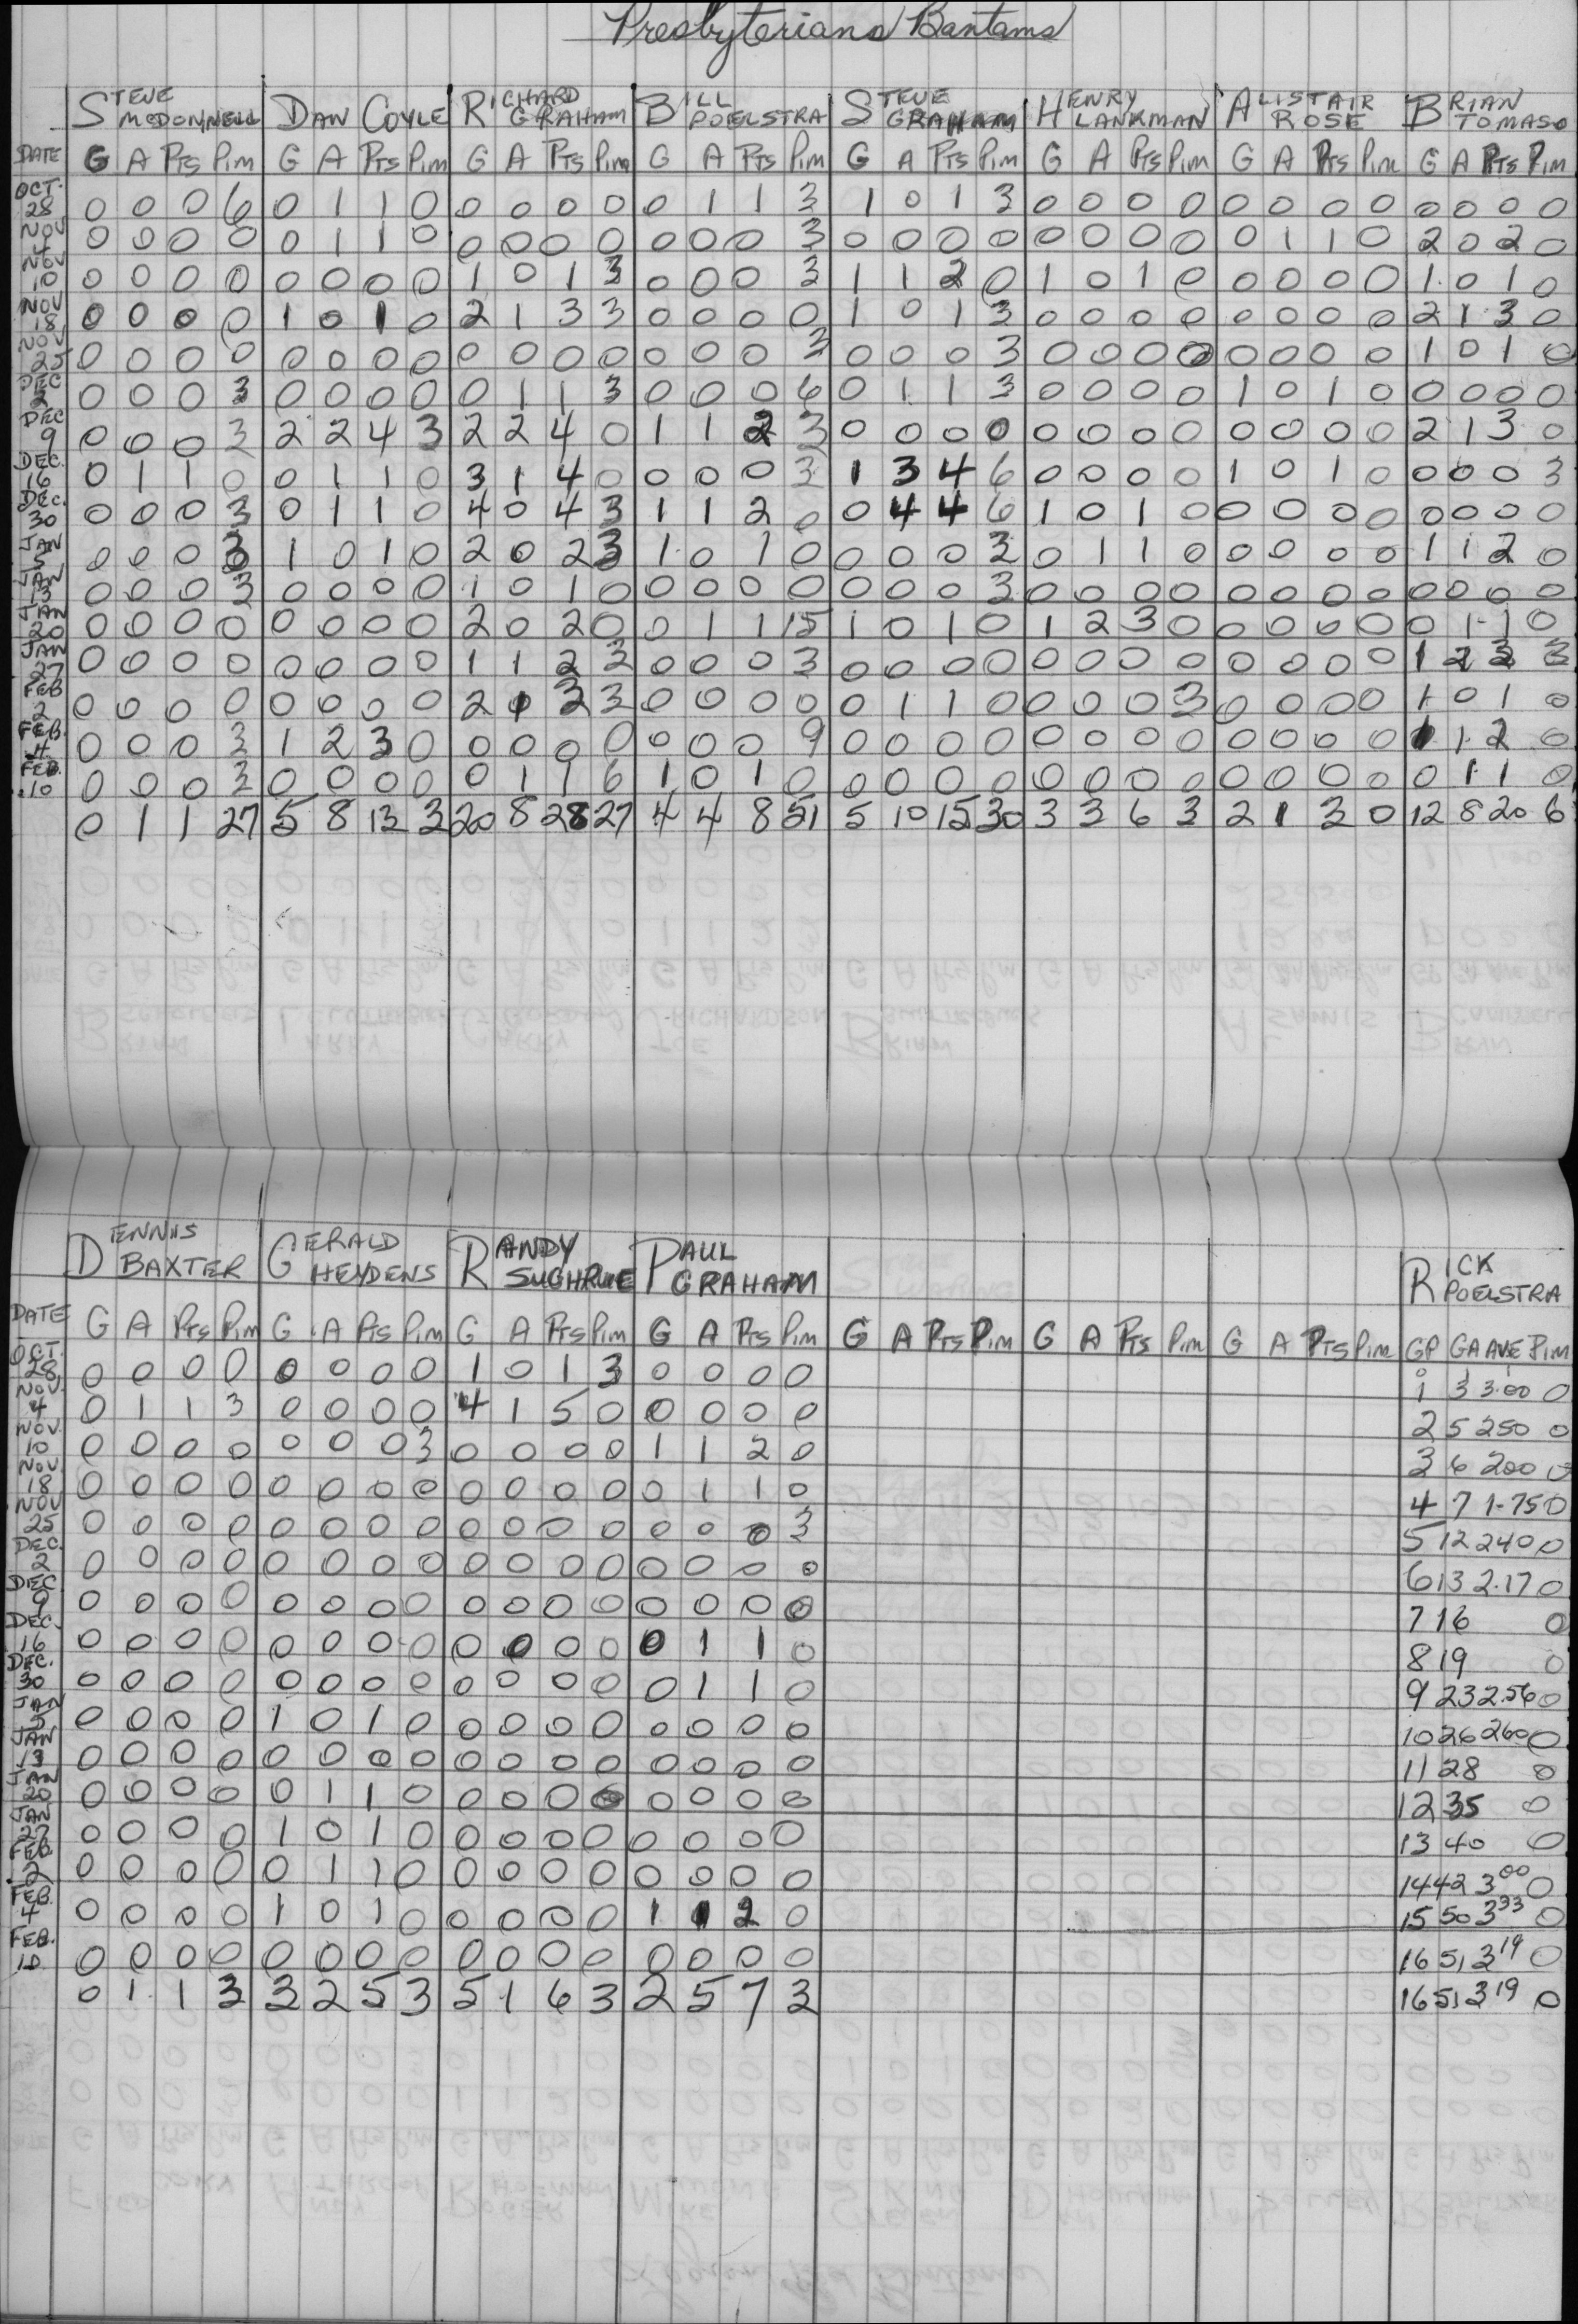 Presbyterians Bantams
STEVE MCDONNELL DAN COYLE RICHARD GRAHAM BILL POELSTRA STEVE GRAHAM HENRY LANKMAN ALISTAIR ROSE BRIAN TOMASO
DATE G A PTS PIM G A PTS PIM G A PTS PIM G A PTS PIM G A PTS PIM G A PTS PIM G A PTS PIM G A PTS PIM
OCT. 28 0 0 0 6 0 1 1 0 0 0 0 0 0 1 1 3 1 0 1 3 0 0 0 0 0 0 0 0 0 0 0 0
NOV 4 0 0 0 0 0 1 1 0 0 0 0 0 0 0 0 3 0 0 0 0 0 0 0 0 0 1 1 0 2 0 2 0
NOV 10 0 0 0 0 0 0 0 0 1 0 1 3 0 0 0 3 1 1 2 0 1 0 1 0 0 0 0 0 1 0 1 0
NOV 18 0 0 0 0 1 0 1 0 2 1 3 3 0 0 0 0 1 0 1 3 0 0 0 0 0 0 0 0 2 1 3 0
NOV 25 0 0 0 0 0 0 0 0 0 0 0 0 0 0 0 3 0 0 0 3 0 0 0 0 0 0 0 0 1 0 1 0
DEC 2 0 0 0 3 0 0 0 0 0 1 1 3 0 0 0 6 0 1 1 3 0 0 0 0 1 0 1 0 0 0 0 0
DEC 9 0 0 0 3 2 2 4 3 2 2 4 0 1 1 2 3 0 0 0 0 0 0 0 0 0 0 0 0 2 1 3 0
DEC. 16 0 1 1 0 0 1 1 0 3 1 4 0 0 0 0 3 1 3 4 6 0 0 0 0 1 0 1 0 0 0 0 3
DEC. 30 0 0 0 3 0 1 1 0 4 0 4 3 1 1 2 0 0 4 4 6 1 0 1 0 0 0 0 0 0 0 0 0
JAN 5 0 0 0 3 1 0 1 0 2 0 2 3 1 0 1 0 0 0 0 3 0 1 1 0 0 0 0 0 1 1 2 0
JAN 13 0 0 0 3 0 0 0 0 1 0 1 0 0 0 0 0 0 0 0 3 0 0 0 0 0 0 0 0 0 0 0 0
JAN 20 0 0 0 0 0 0 0 0 2 0 2 0 0 1 1 15 1 0 1 0 1 2 3 0 0 0 0 0 0 1 1 0
JAN 27 0 0 0 0 0 0 0 0 1 1 2 3 0 0 0 3 0 0 0 0 0 0 0 0 0 0 0 0 1 2 3 3
FEB 2 0 0 0 0 0 0 0 0 2 1 3 3 0 0 0 0 0 1 1 0 0 0 0 3 0 0 0 0 1 0 1 0
FEB. 4 0 0 0 3 1 2 3 0 0 0 0 0 0 0 0 9 0 0 0 0 0 0 0 0 0 0 0 0 1 1 2 0
FEB. 10 0 0 0 3 0 0 0 0 0 1 1 6 1 0 1 0 0 0 0 0 0 0 0 0 0 0 0 0 0 1 1 0
0 1 1 27 5 8 13 3 20 8 28 27 4 4 8 51 5 10 15 30 3 3 6 3 2 1 3 0 12 8 20 6
DENNIS BAXTER GERALD HEYDENS RANDY SUGHRUE PAUL GRAHAM RICK POELSTRA
DATE G A PTS PIM G A PTS PIM G A PTS PIM G A PTS PIM G A PTS PIM G A PTS PIM G A PTS PIM GP GA AVE PIM
OCT. 28 0 0 0 0 0 0 0 0 1 0 1 3 0 0 0 0 1 3 3.00 0
NOV. 4 0 1 1 3 0 0 0 0 4 1 5 0 0 0 0 0 2 5 250 0
NOV. 10 0 0 0 0 0 0 0 3 0 0 0 0 1 1 2 0 3 6 200 0
NOV. 18 0 0 0 0 0 0 0 0 0 0 0 0 0 1 1 0 4 7 1.75 0
NOV 25 0 0 0 0 0 0 0 0 0 0 0 0 0 0 0 3 5 12 240 0
DEC. 2 0 0 0 0 0 0 0 0 0 0 0 0 0 0 0 0 6 13 2.17 0
DEC 9 0 0 0 0 0 0 0 0 0 0 0 0 0 0 0 0 7 16 0
DEC. 16 0 0 0 0 0 0 0 0 0 0 0 0 0 1 1 0 8 19 0
DEC. 30 0 0 0 0 0 0 0 0 0 0 0 0 0 1 1 0 9 23 2.56 0
JAN 5 0 0 0 0 1 0 1 0 0 0 0 0 0 0 0 0 10 26 260 0
JAN 13 0 0 0 0 0 0 0 0 0 0 0 0 0 0 0 0 11 28 0
JAN 20 0 0 0 0 0 1 1 0 0 0 0 0 0 0 0 0 12 35 0
JAN 27 0 0 0 0 1 0 1 0 0 0 0 0 0 0 0 0 13 40 0
FEB. 2 0 0 0 0 0 1 1 0 0 0 0 0 0 0 0 0 14 42 3 00 0
FEB. 4 0 0 0 0 1 0 1 0 0 0 0 0 1 1 2 0 15 50 3 33 0
FEB. 10 0 0 0 0 0 0 0 0 0 0 0 0 0 0 0 0 16 51 3 19 0
0 1 1 3 3 2 5 3 5 1 6 3 2 5 7 3 16 51 3 19 0